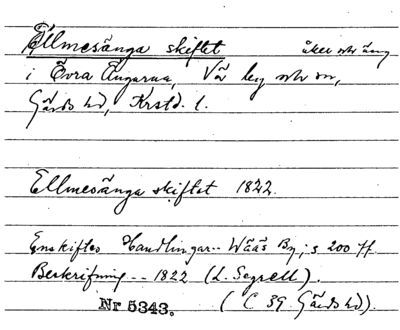 Ellmesånga skiftet åker och äng
i Övra Ängarna, Vä by och sn,
Gärds hd, Krstd. l.
Ellmesånga skiftet 1822.
Enskiftes Handlingar.. Wääs By; s 200 ff
Beskrifning -- 1822 (L. Segrell).
Nr 5343. (C 39 Gärds hd).